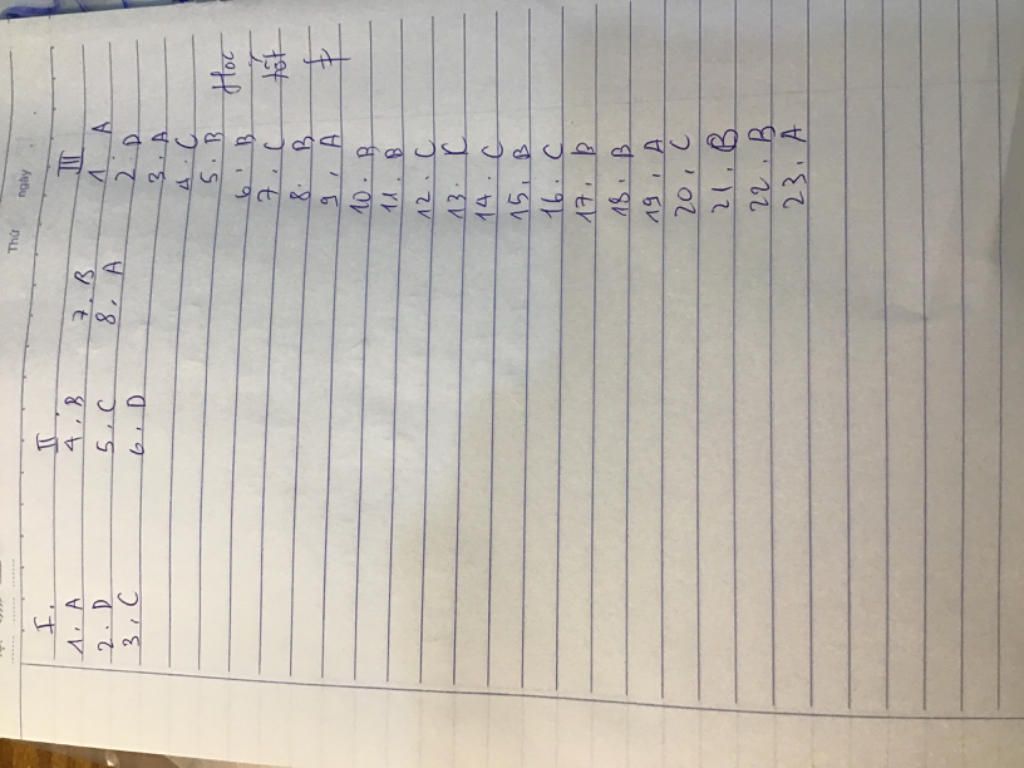 Thứ ngày
I. II III
1. A 4. B 7. B 1. A
2. D 5. C 8. A 2. D
3. C 6. D 3. A
4. C
5. B
6. B Học
7. C tốt
8. B
9. A
10. B
11. B
12. C
13. C
14. C
15. B
16. C
17. D
18. B
19. A
20. C
21. B
22. B
23. A